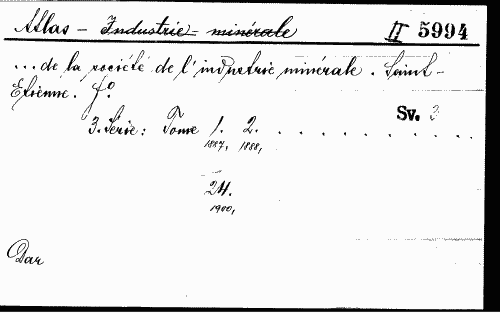 Atlas - Industrie minérale II 5994
... de la société de l'industrie minérale. Saint-
Etienne. f°.
Sv. 3
3. Série: Tome 1. 2. . . . . . . . . . .
1887, 1888,
24.
1900,
Dar